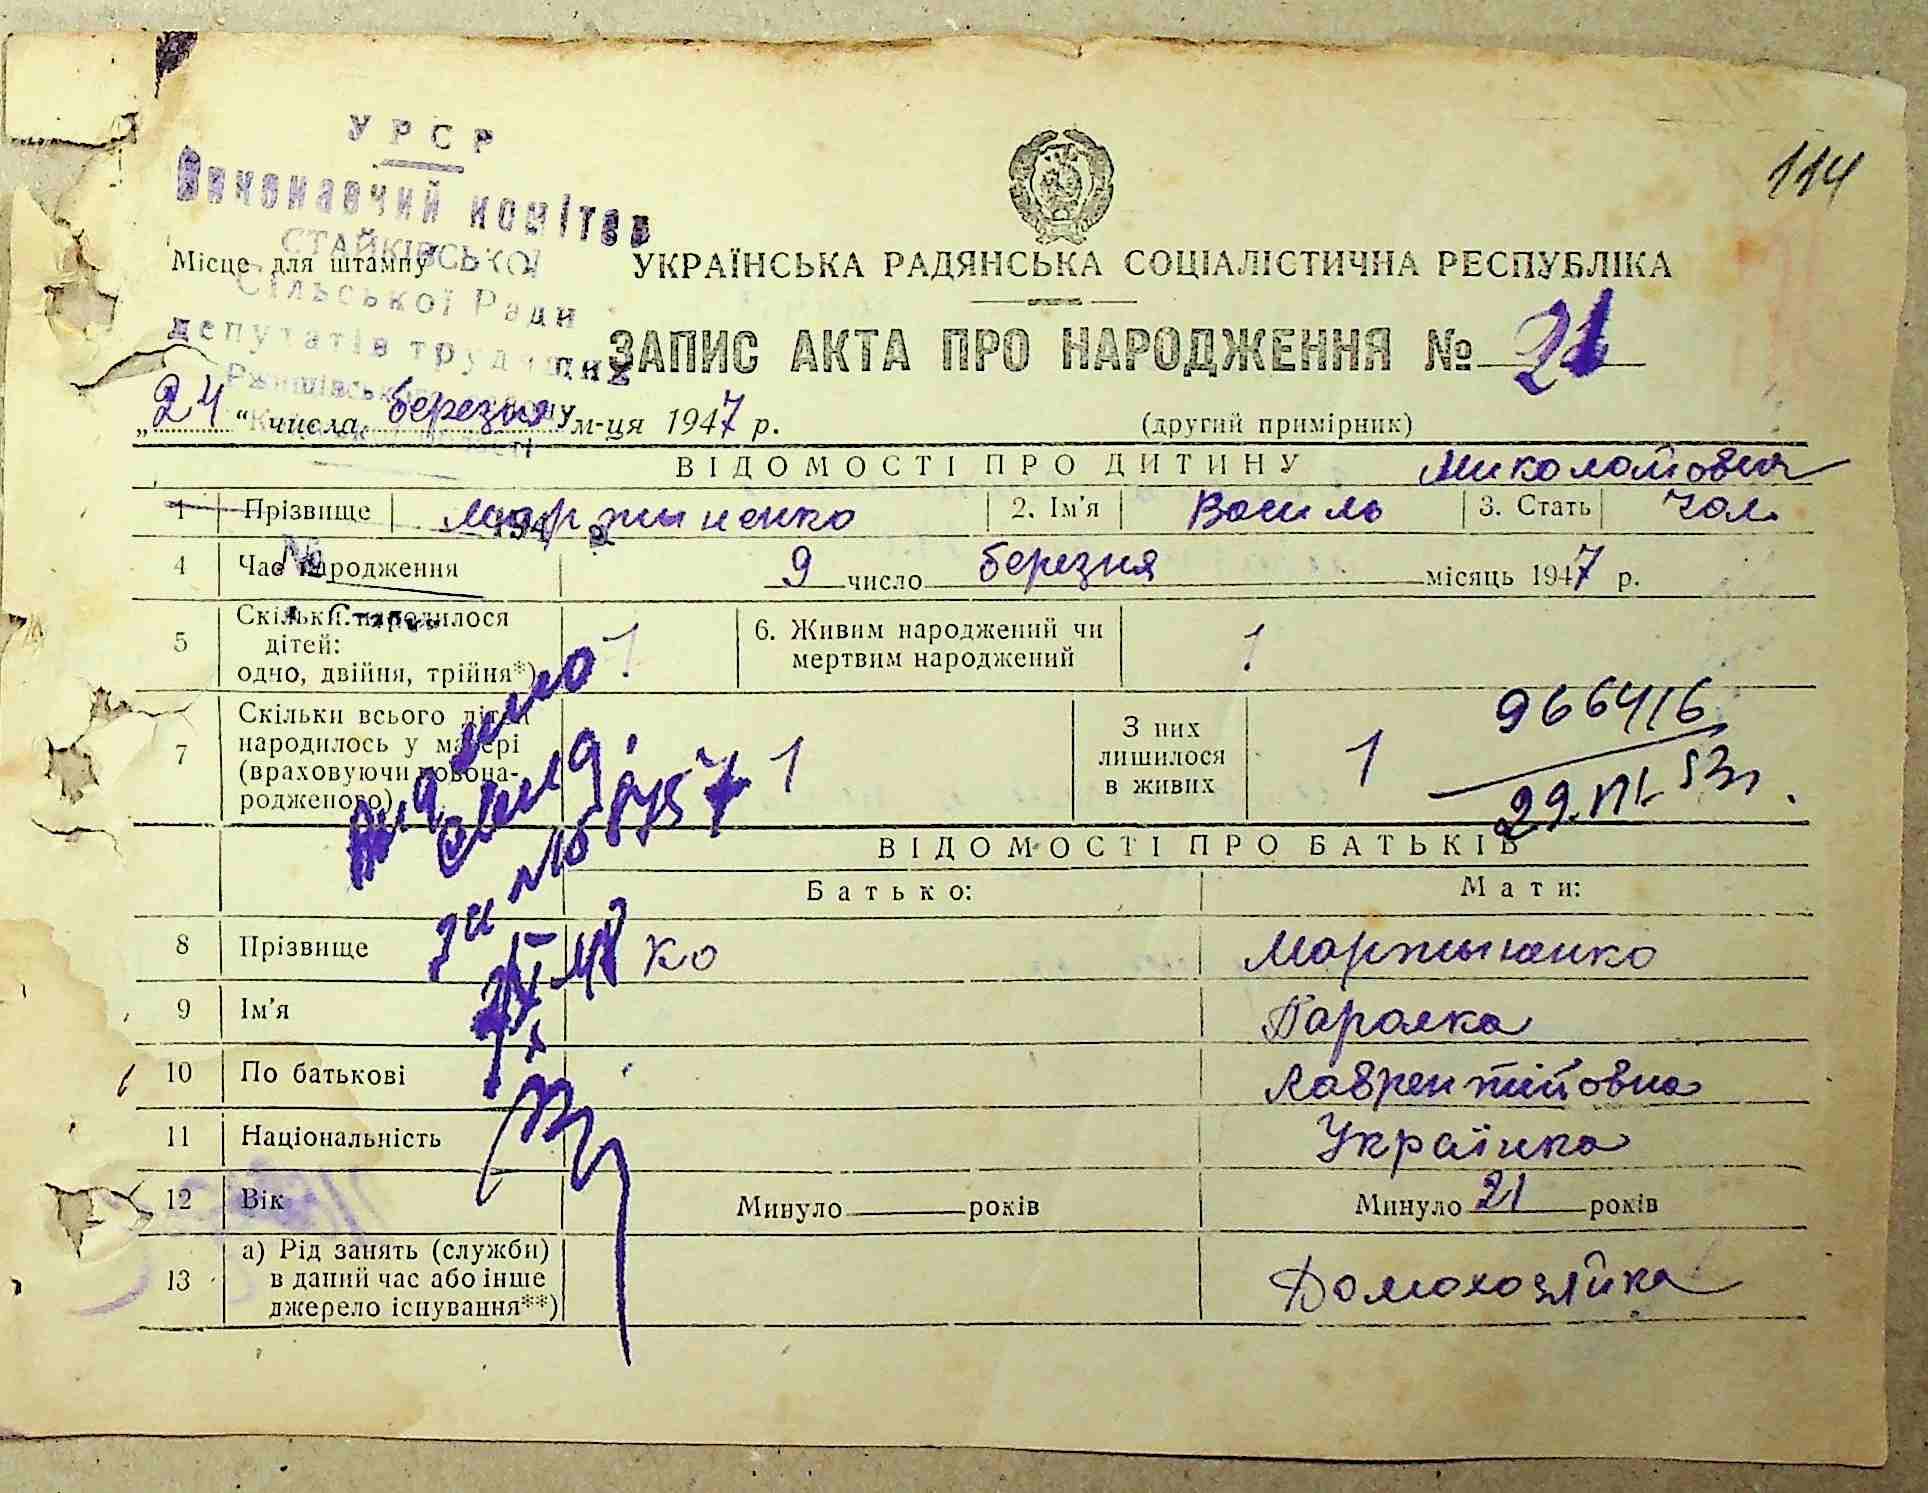 114
УРСР
Виконавчий комітет
СТАЙКІВСЬКОЇ
Сільської Ради
депутатів трудящих
Місце для штампу
УКРАЇНСЬКА РАДЯНСЬКА СОЦІАЛІСТИЧНА РЕСПУБЛІКА
ЗАПИС АКТА ПРО НАРОДЖЕННЯ № 21
„24“ числа березня м-ця 1947 р.
(другий примірник)
ВІДОМОСТІ ПРО ДИТИНУ Миколайович
1 Прізвище Мартиненко 2. Ім'я Василь 3. Стать Чол.
4 Час народження 9 число березня місяць 1947 р.
5 Скільки народилося дітей: одно, двійня, трійня*) 1 6. Живим народжений чи мертвим народжений 1
7 Скільки всього дітей народилось у матері (враховуючи новонародженого) 1 З них лишилося в живих 1
966416
29. 53
ВІДОМОСТІ ПРО БАТЬКІВ
Батько: Мати:
8 Прізвище ко Мартиненко
9 Ім'я Параска
10 По батькові Лаврентійовна
11 Національність Українка
12 Вік Минуло рокiв Минуло 21 років
13 а) Рід занять (служби) в даний час або інше джерело існування**) Домохозяйка